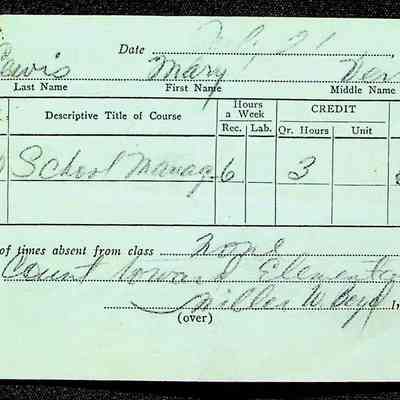 Date
Lewis Mary
Last Name First Name Middle Name
Descriptive Title of Course Hours a Week CREDIT
Rec. Lab. Qr. Hours Unit
School Manag. 6 3
of times absent from class none
Count toward Elementa
(over)